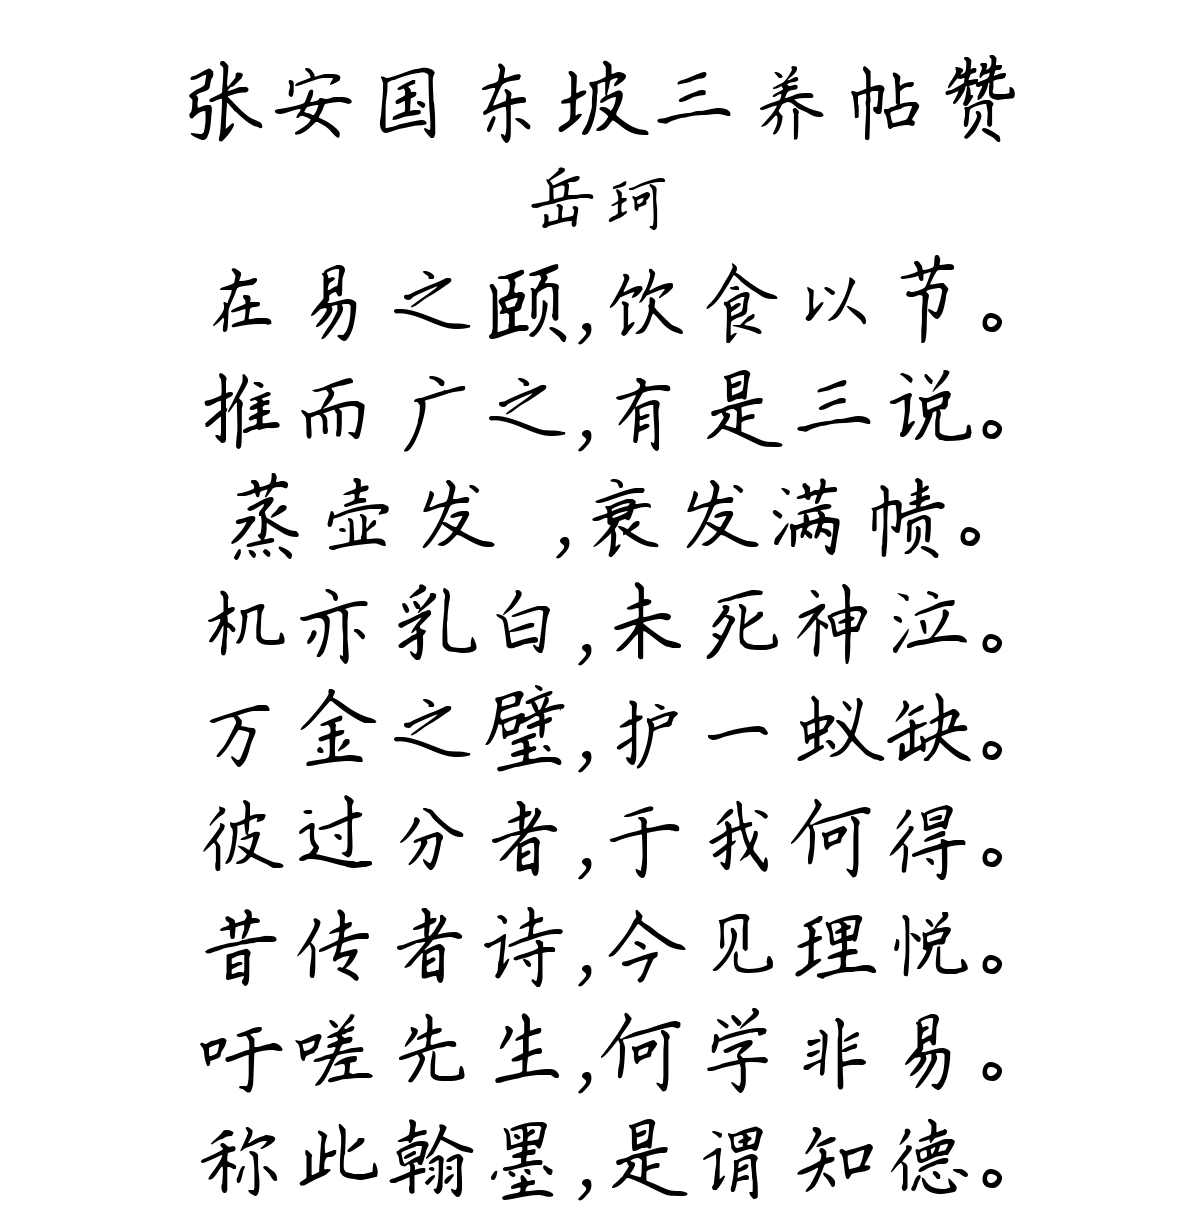 张安国东坡三养帖赞
岳珂
在易之颐,饮食以节。
推而广之,有是三说。
蒸壶发 ,衰发满帻。
机亦乳白,未死神泣。
万金之璧,护一蚁缺。
彼过分者,于我何得。
昔传者诗,今见理悦。
吁嗟先生,何学非易。
称此翰墨,是谓知德。